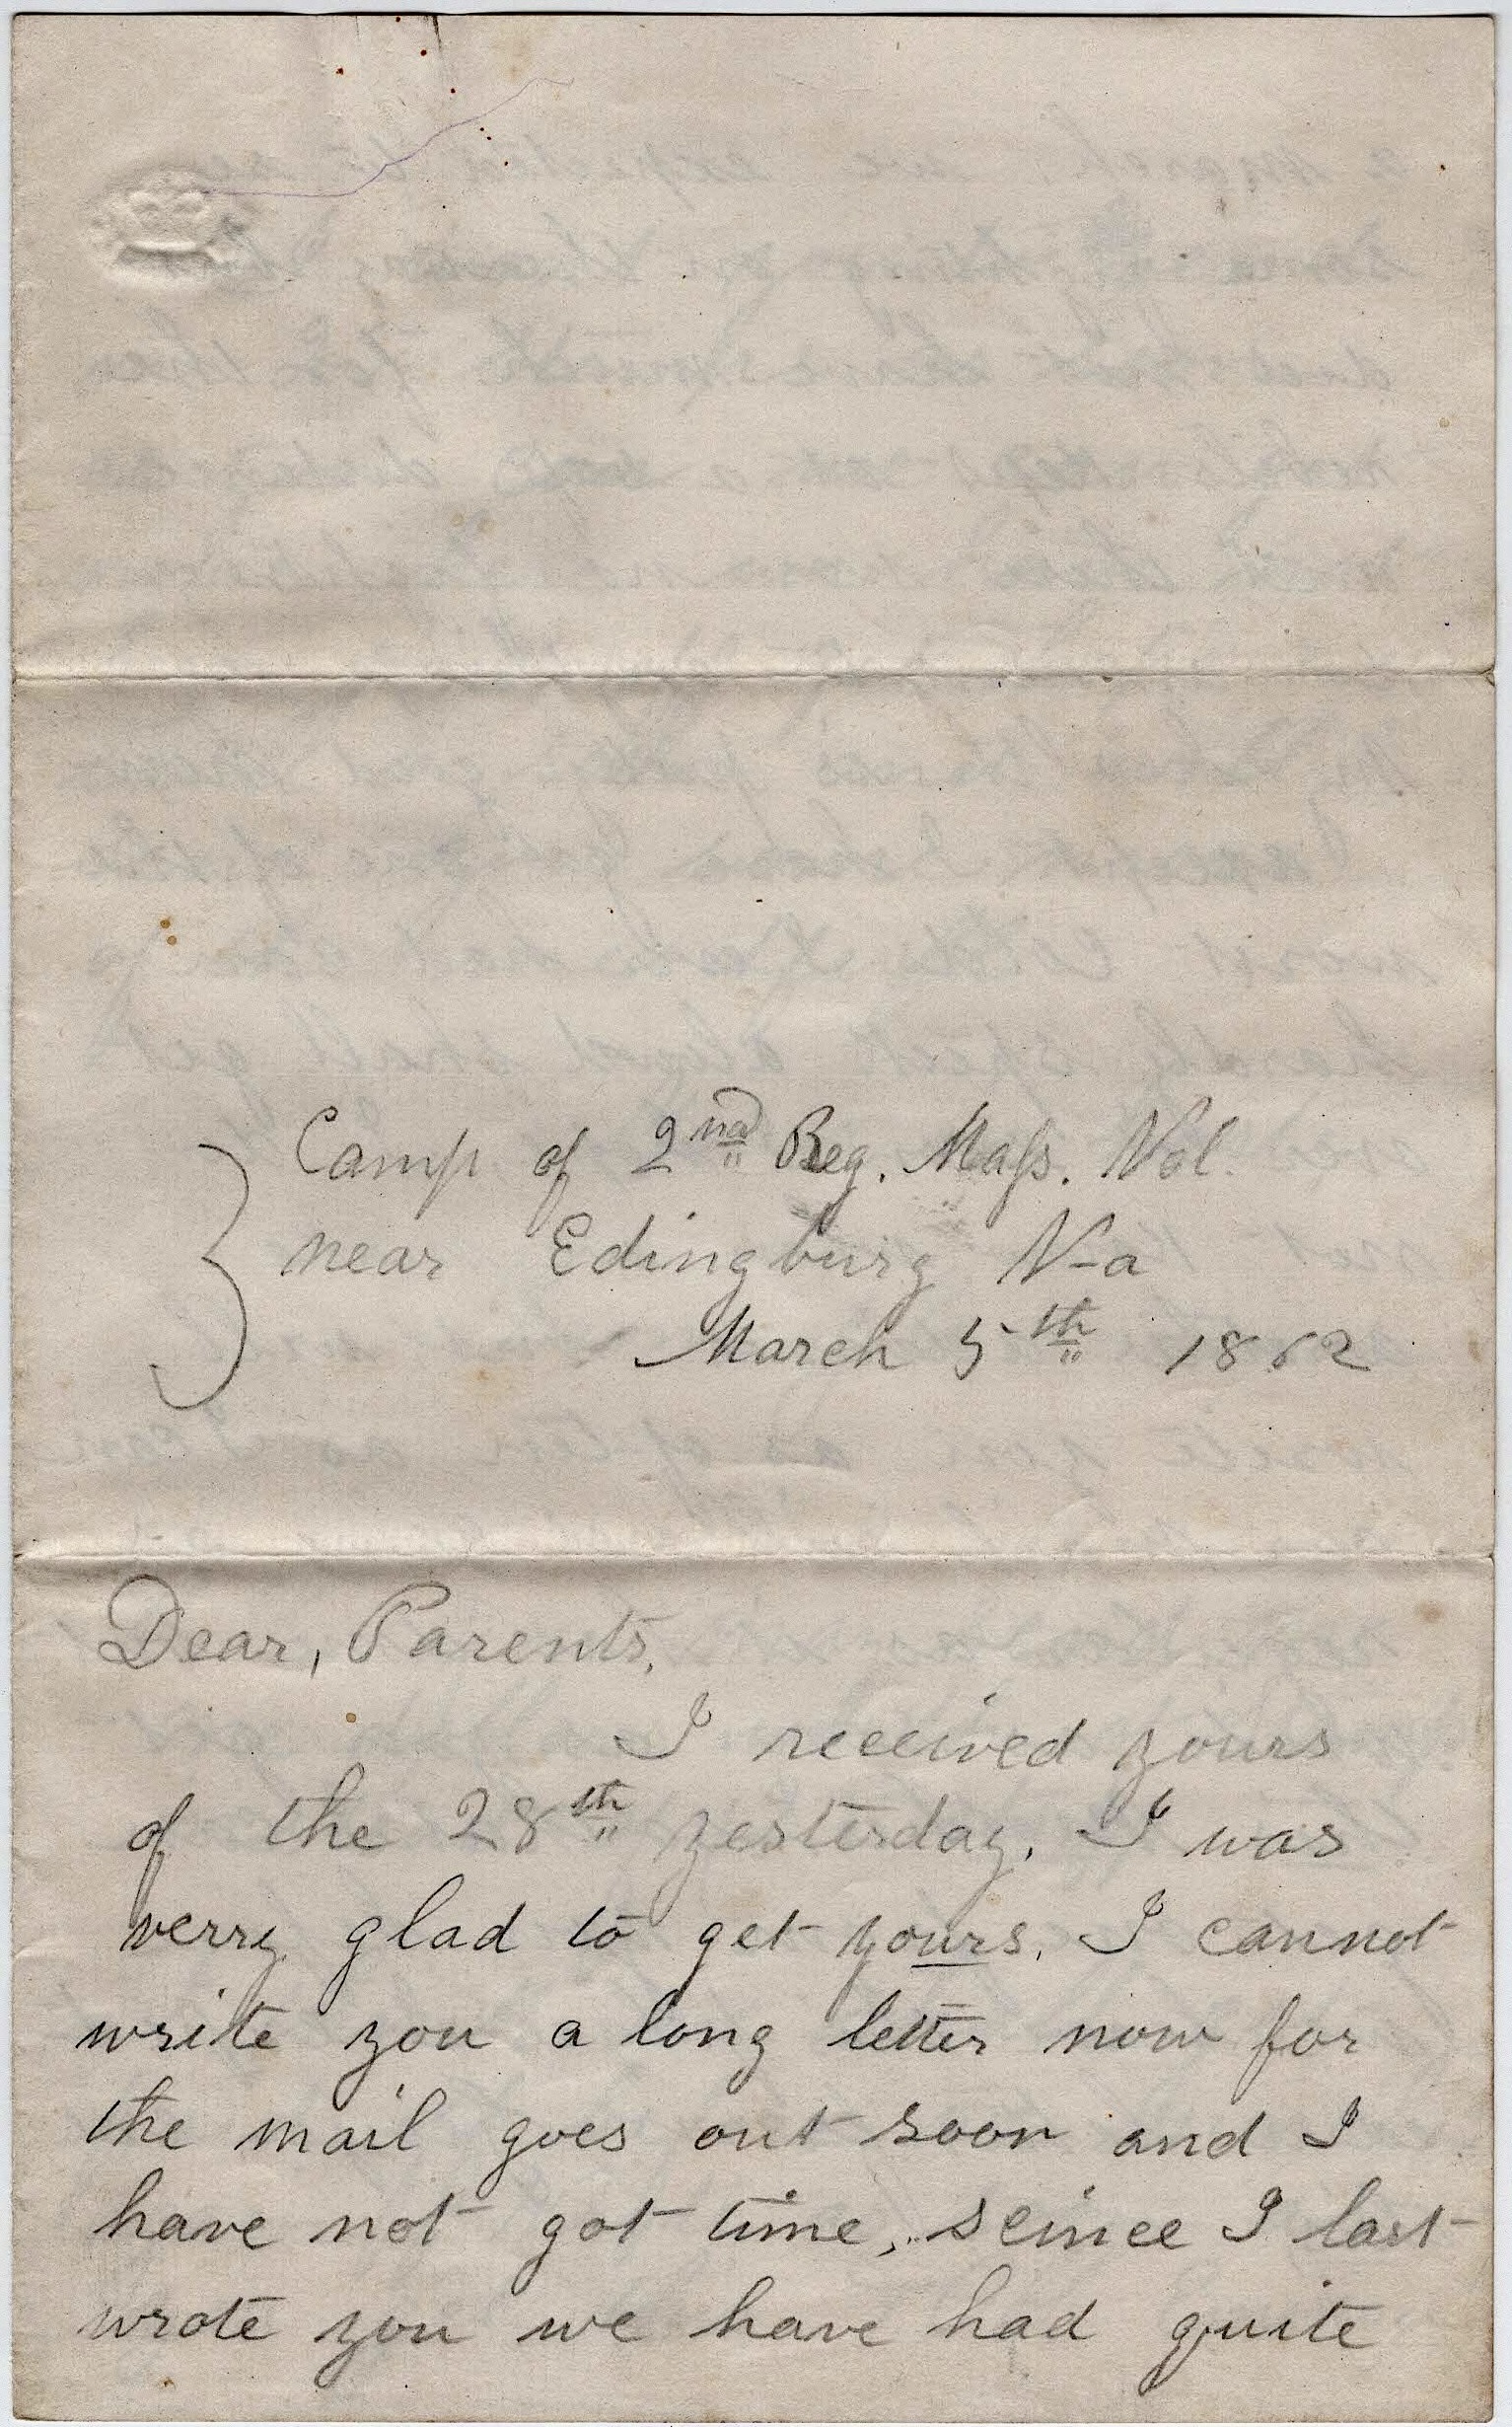 Camp of 2nd Reg. Maſs. Vol.
near Edingburg Va
March 5th 1862
Dear, Parents,
I received yours
of the 28th yesterday. I was
verry glad to get yours. I cannot
write you a long letter now for
the mail goes out soon and I
have not got time, seince I last
wrote you we have had quite